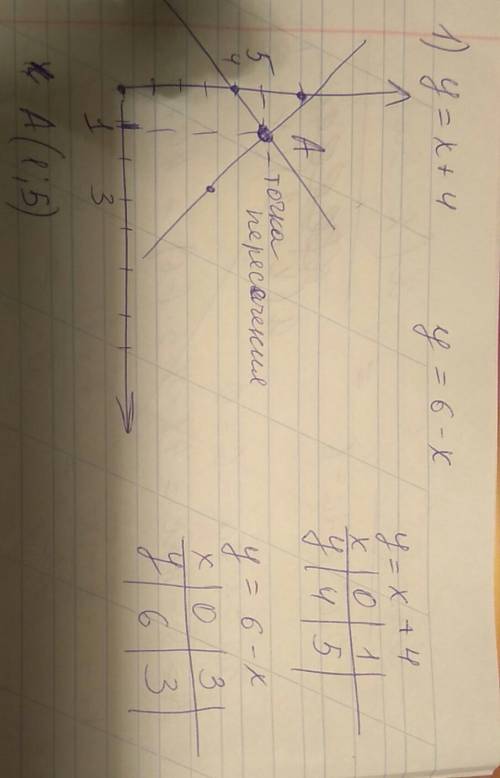 1) y = x + 4 y = 6 - x
5
4
A
- точка
пересечения
1 3
A(1; 5)
y = x + 4
x | 0 | 1
y | 4 | 5
y = 6 - x
x | 0 | 3
y | 6 | 3